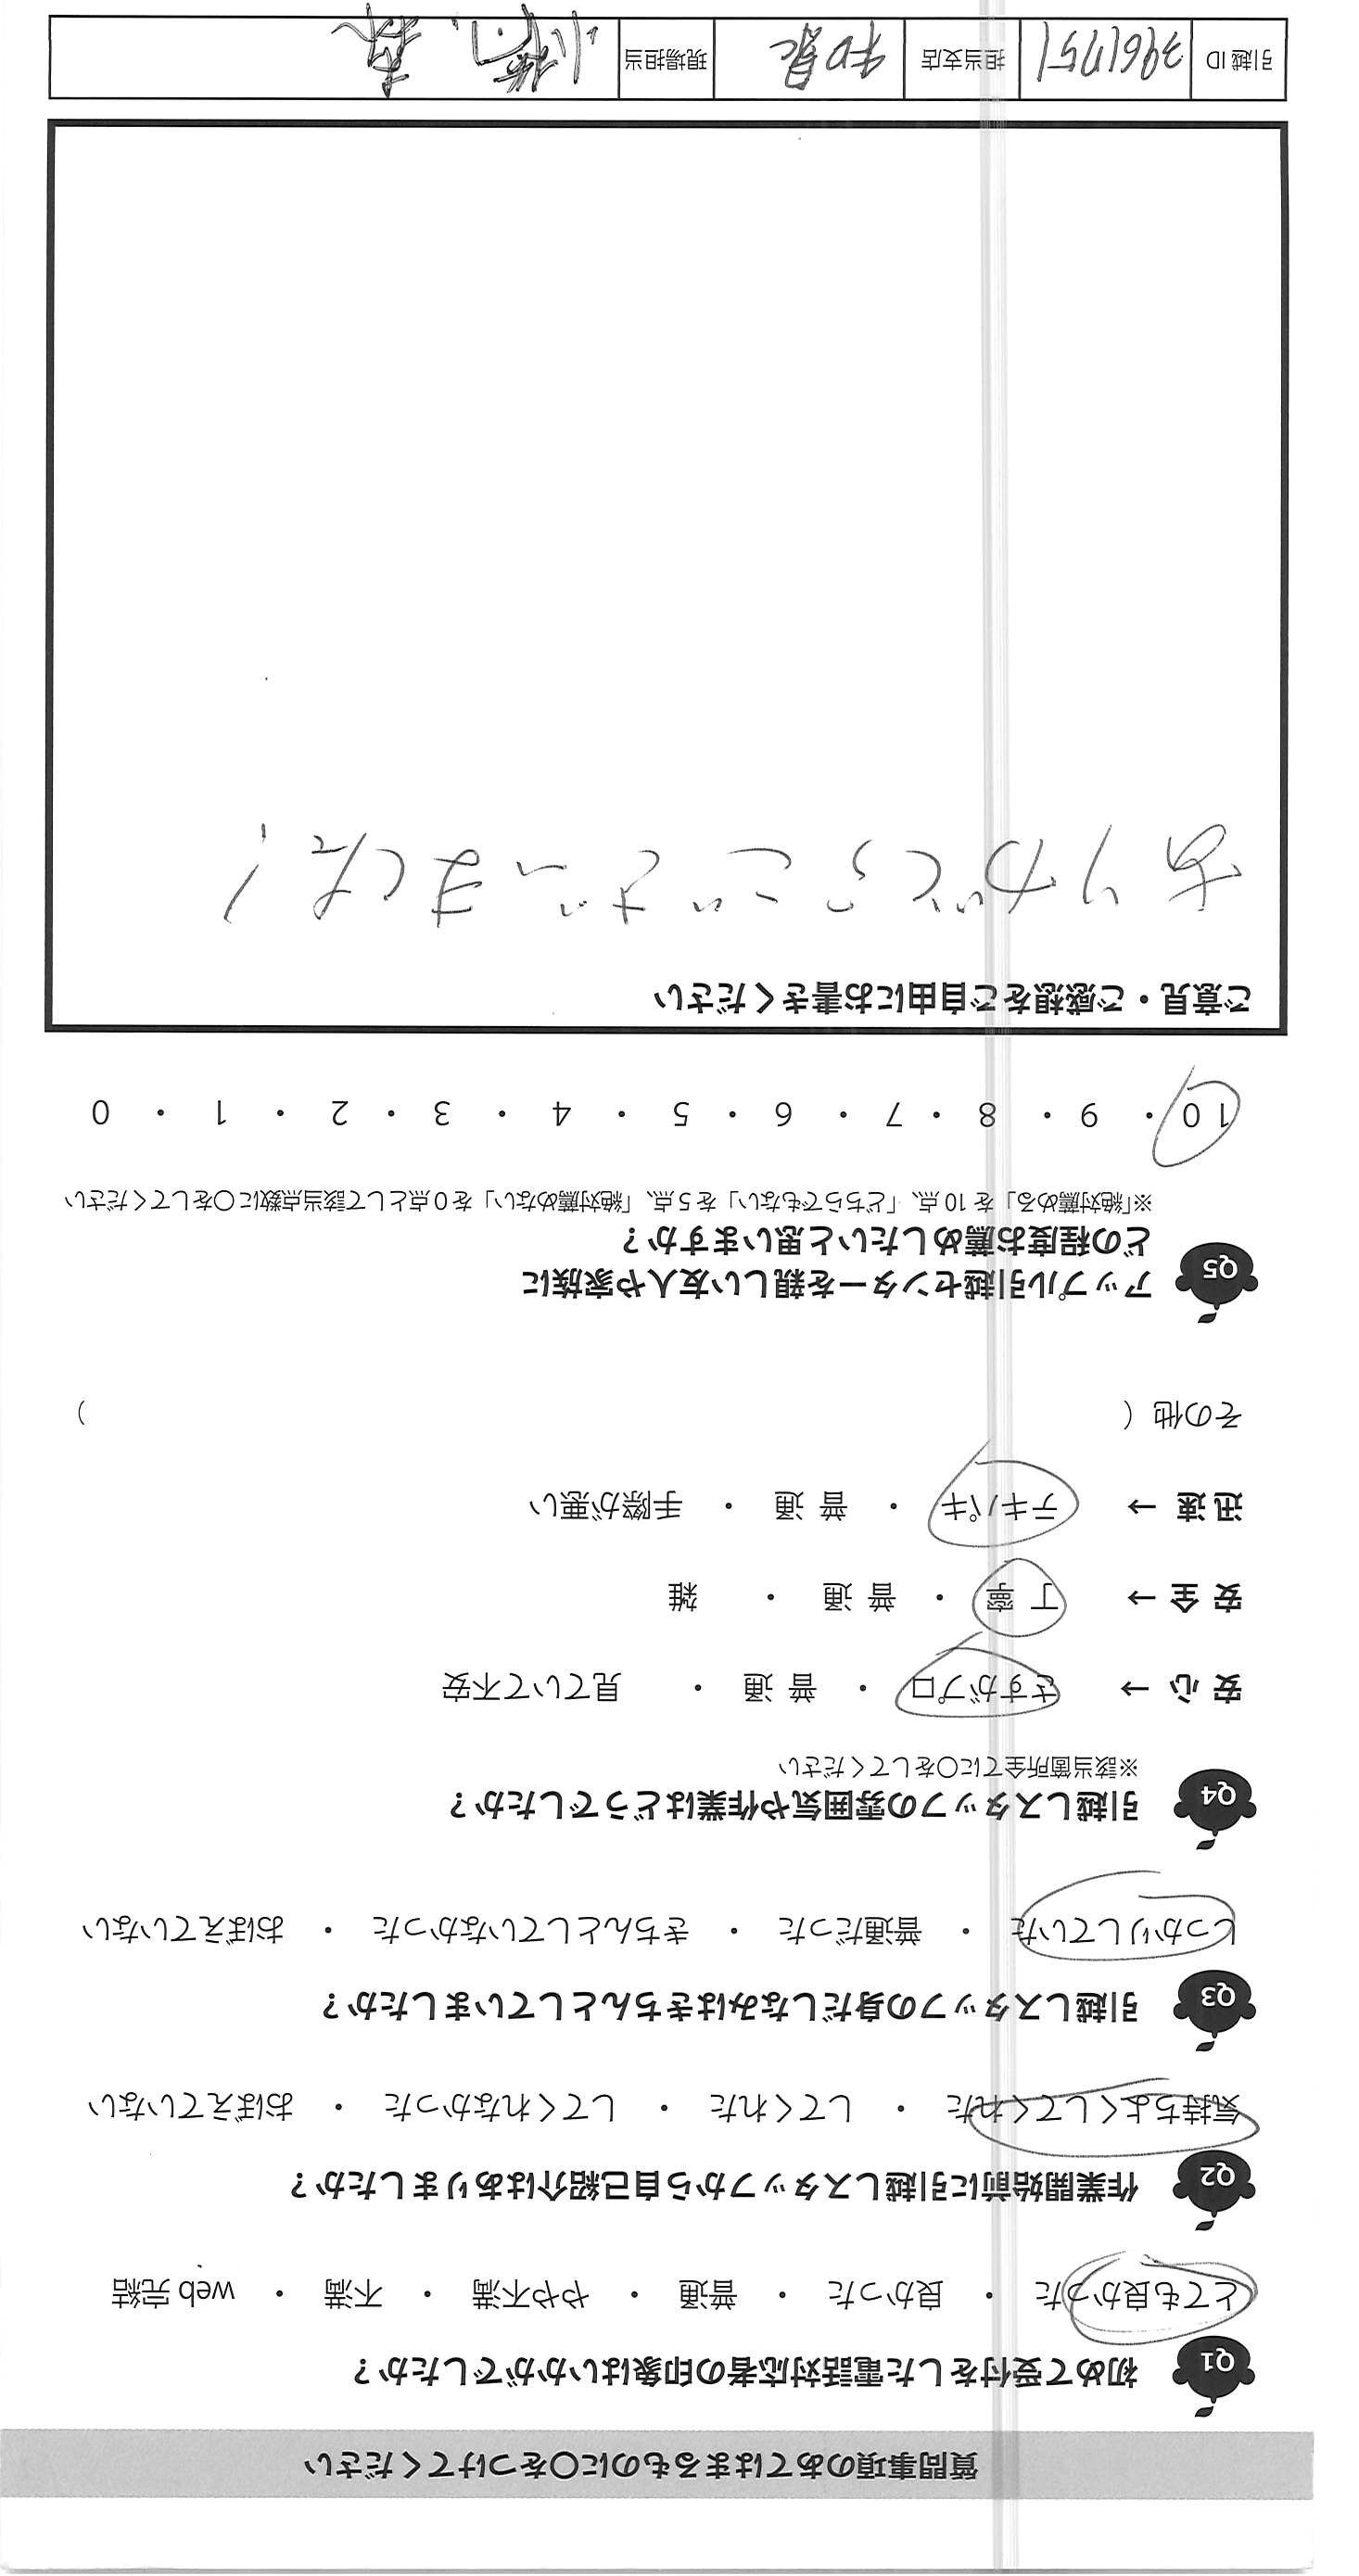 質問事項のあてはまるものに〇をつけてください
Q1 初めて受付をした電話対応者の印象はいかがでしたか？
とても良かった ・ 良かった ・ 普通 ・ やや不満 ・ 不満 ・ web 完結
Q2 作業開始前に引越しスタッフから自己紹介はありましたか？
気持ちよくしてくれた ・ してくれた ・ してくれなかった ・ おぼえていない
Q3 引越しスタッフの身だしなみはきちんとしていましたか？
しっかりしていた ・ 普通だった ・ きちんとしていなかった ・ おぼえていない
Q4 引越しスタッフの雰囲気や作業はどうでしたか？
※該当箇所全てに〇をしてください
安 心 → さすがプロ ・ 普 通 ・ 見ていて不安
安 全 → 丁 寧 ・ 普 通 ・ 雑
迅 速 → テキパキ ・ 普 通 ・ 手際が悪い
その他（ ）
Q5 アップル引越センターを親しい友人や家族に
どの程度お薦めしたいと思いますか？
※「絶対薦める」を 10 点、「どちらでもない」を 5 点、「絶対薦めない」を 0 点として該当点数に〇をしてください
10 ・ 9 ・ 8 ・ 7 ・ 6 ・ 5 ・ 4 ・ 3 ・ 2 ・ 1 ・ 0
ご意見・ご感想をご自由にお書きください
ありがとうございました！
引越 ID 3961751 担当支店 和泉 現場担当